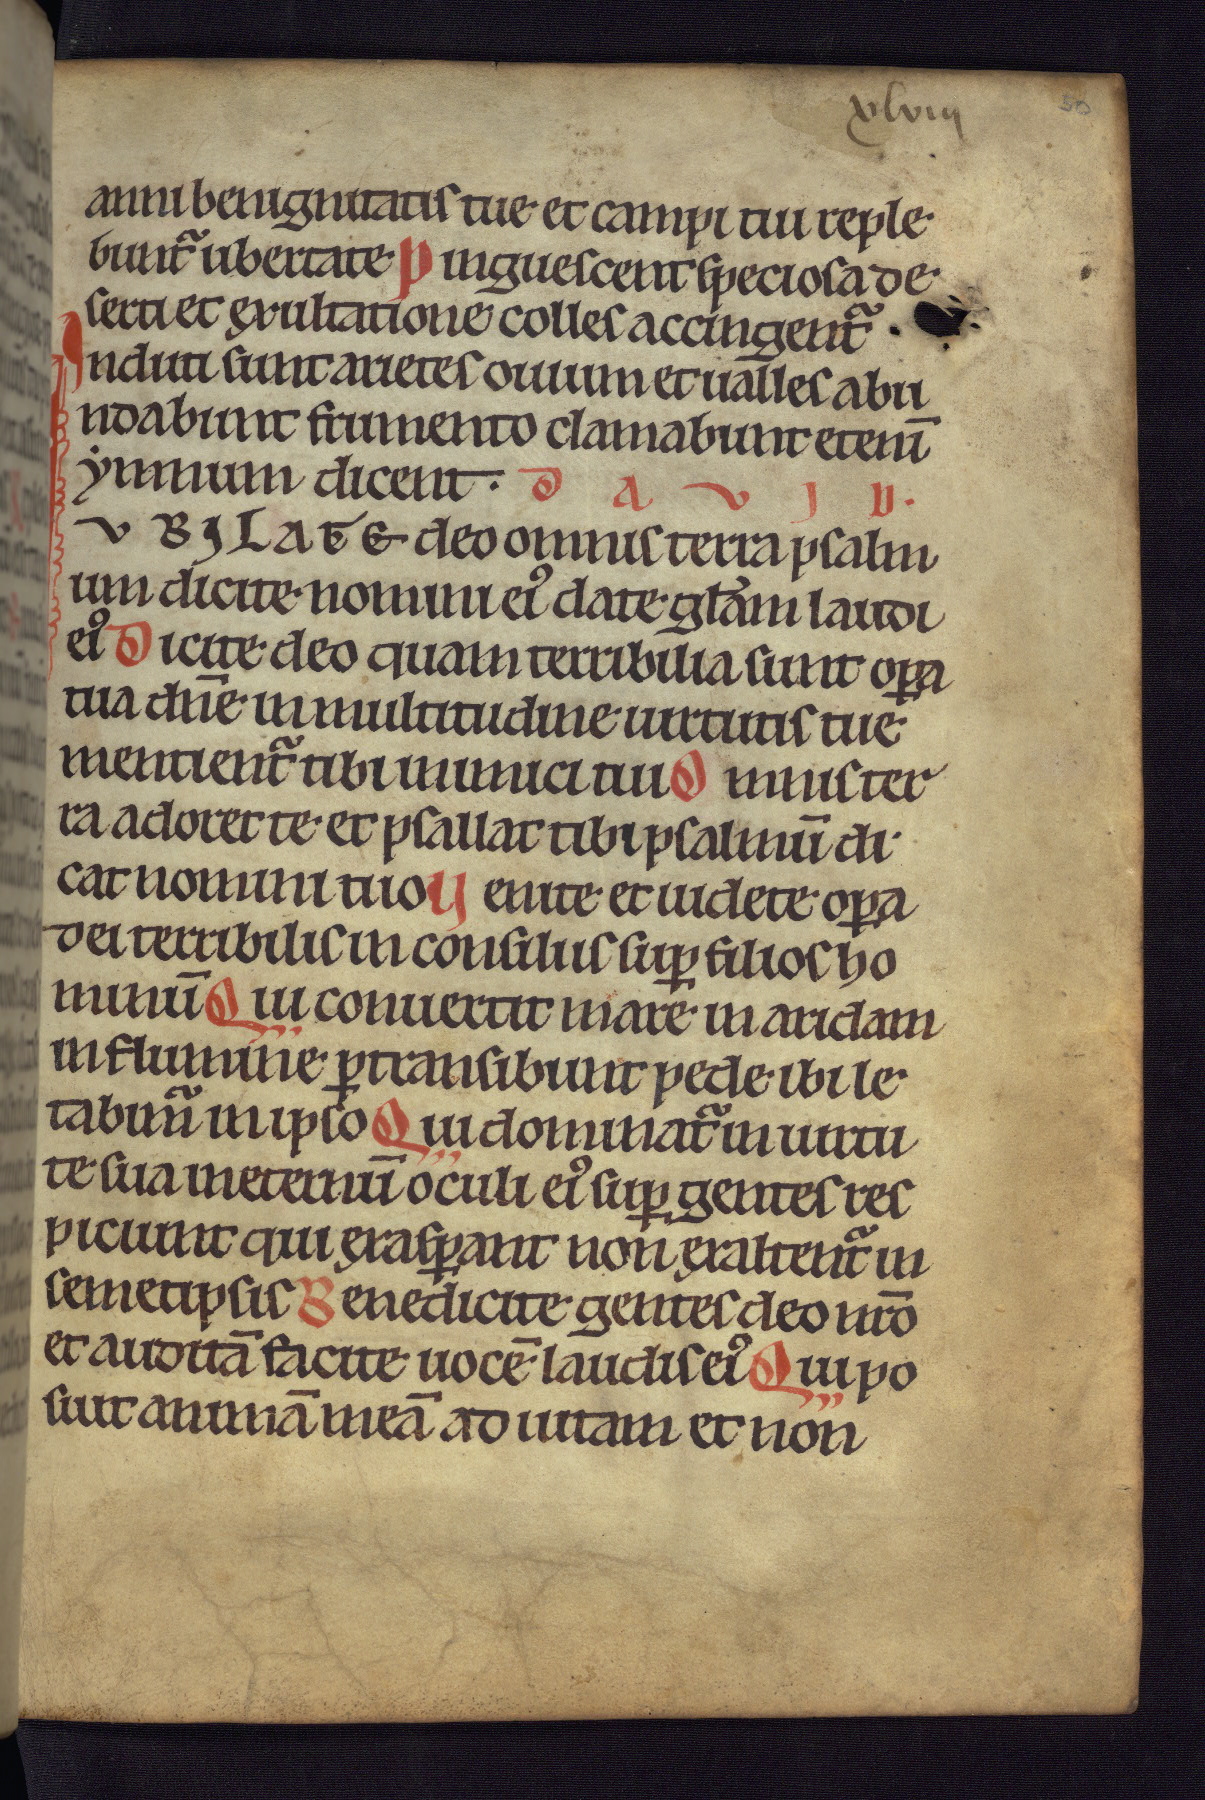 xlviij
50
anni benignitatis tue et campi tui reple
bunt᷑ ubertate Pinguescent speciosa de
serti et exultatione colles accingent᷑ .
Induti sunt arietes ouium et ualles abu
ndabunt frumento clamabunt eteni̅
ẏmnum dicent. D A V I D.
VBILATE deo omnis terra psalm
um dicite nomini eiꝰ date gl̅am laudi
eiꝰ Dicite deo quam terribilia sunt oꝑa
tua dn̅e in multitudine uirtutis tue
mentient᷑ tibi inimici tui Omnis ter
ra adoret te et psallat tibi psalmu̅ di
cat nomini tuo Uenite et uidete oꝑa
dei terribilis in consiliis suꝑ filios ho
minu̅ Qui conuertit mare in aridam
in flumine ꝑtransibunt pede ibi le
tabim᷑ in ipso Qui dominat᷑ in uirtu
te sua in eternu̅ oculi eiꝰ suꝑ gentes res
piciunt qui exasꝑant non exaltent᷑ in
semetipsis Benedicite gentes deo nr̅o
et audita̅ facite uoce̅ laudis eiꝰ Qui po
suit anima̅ mea̅ ad uitam et non